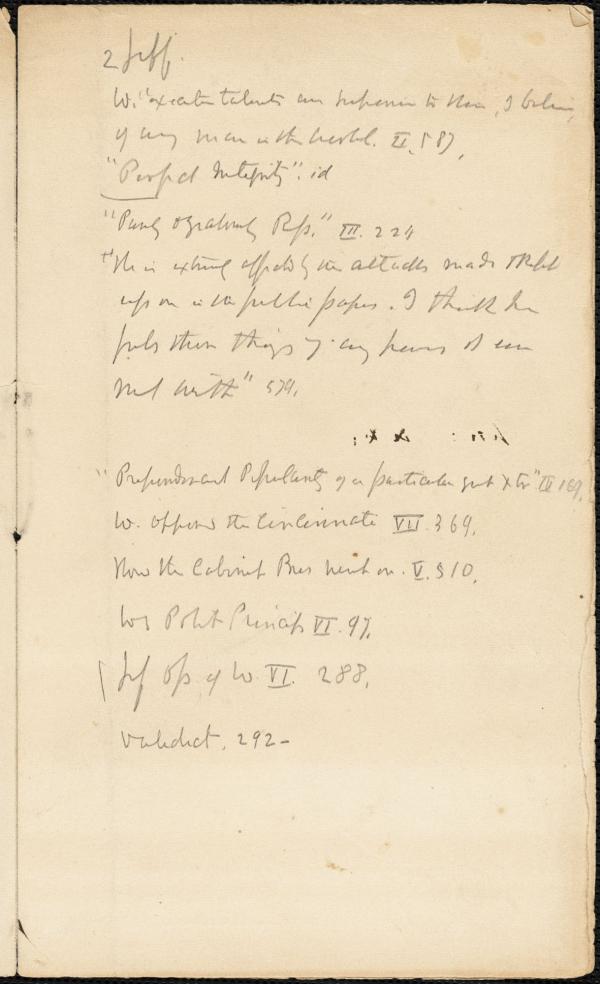 2 Jeff.
W.'s "executive talents are superior to those, I believe,
of any man in the world. II, 587,
"Perfect Integrity". id
"Purely & Reps." III. 224
"He is extremely affected by the attacks made & kept
up on in the public papers. I think he
feels those things of any person I ever
met with" 579.
"Preponderant Popularity of a particular great " III 169,
W. opposed the Cincinnati VII. 369,
How the Cabinet Bus went on. V. 310,
W's Polit Princips VI. 97,
Jef Op. of W. VI. 288,
Valedict. 292–